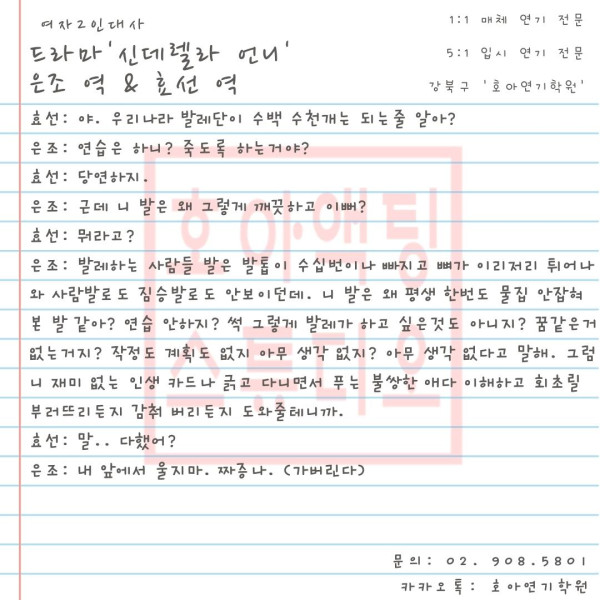 여자2인대사
드라마'신데렐라 언니'
은조 역 & 효선 역
1:1 매체 연기 전문
5:1 입시 연기 전문
강북구 '호아연기학원'
효선: 야. 우리나라 발레단이 수백 수천개는 되는줄 알아?
은조: 연습은 하니? 죽도록 하는거야?
효선: 당연하지.
은조: 근데 니 발은 왜 그렇게 깨끗하고 이뻐?
효선: 뭐라고?
은조: 발레하는 사람들 발은 발톱이 수십번이나 빠지고 뼈가 이리저리 튀어나
와 사람발로도 짐승발로도 안보이던데. 니 발은 왜 평생 한번도 물집 안잡혀
본 발 같아? 연습 안하지? 썩 그렇게 발레가 하고 싶은것도 아니지? 꿈같은거
없는거지? 작정도 계획도 없지 아무 생각 없지? 아무 생각 없다고 말해. 그럼
니 재미 없는 인생 카드나 긁고 다니면서 푸는 불쌍한 애다 이해하고 회초릴
부러뜨리든지 감춰 버리든지 도와줄테니까.
효선: 말.. 다했어?
은조: 내 앞에서 울지마. 짜증나. (가버린다)
호아액팅
스튜디오
문의: 02. 908.5801
카카오톡: 호아연기학원